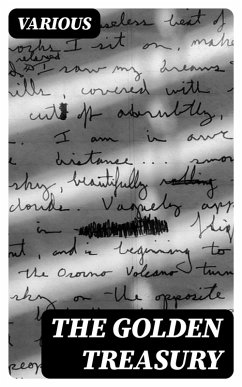 VARIOUS
seless beat of
rocks I sit on, make
relaxed
I saw my dreams
ills, covered with
cut off abruptly,
I am in awe
distance... smo
sky, beautifully
clouds. Vaguely app
this
out, and is beginning to
the Osorno Volcano turn
sky on the opposite
people
THE GOLDEN
TREASURY